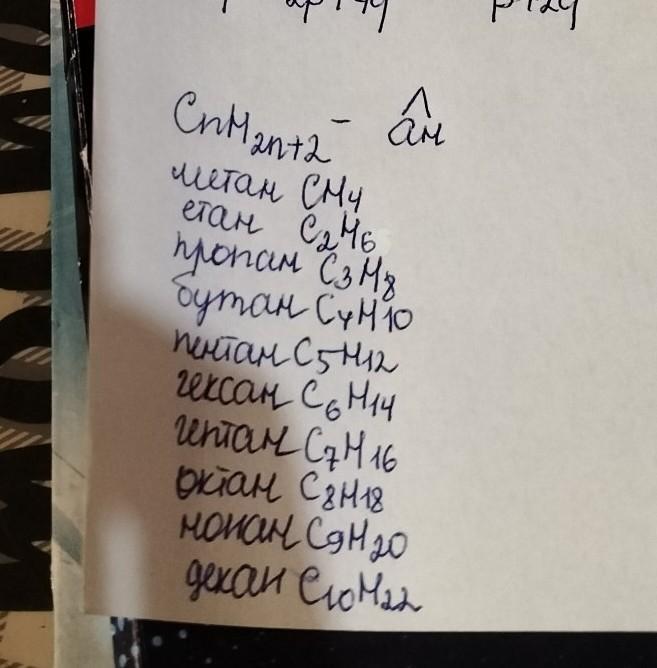 CnH2n+2 - ан
метан CH4
етан C2H6
пропан C3H8
бутан C4H10
пентан C5H12
гексан C6H14
гептан C7H16
октан C8H18
нонан C9H20
декан C10H22